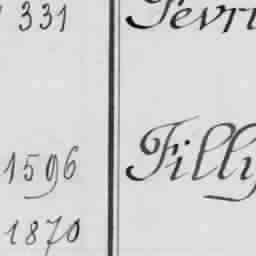 331 Févri
1596 Filly
1870